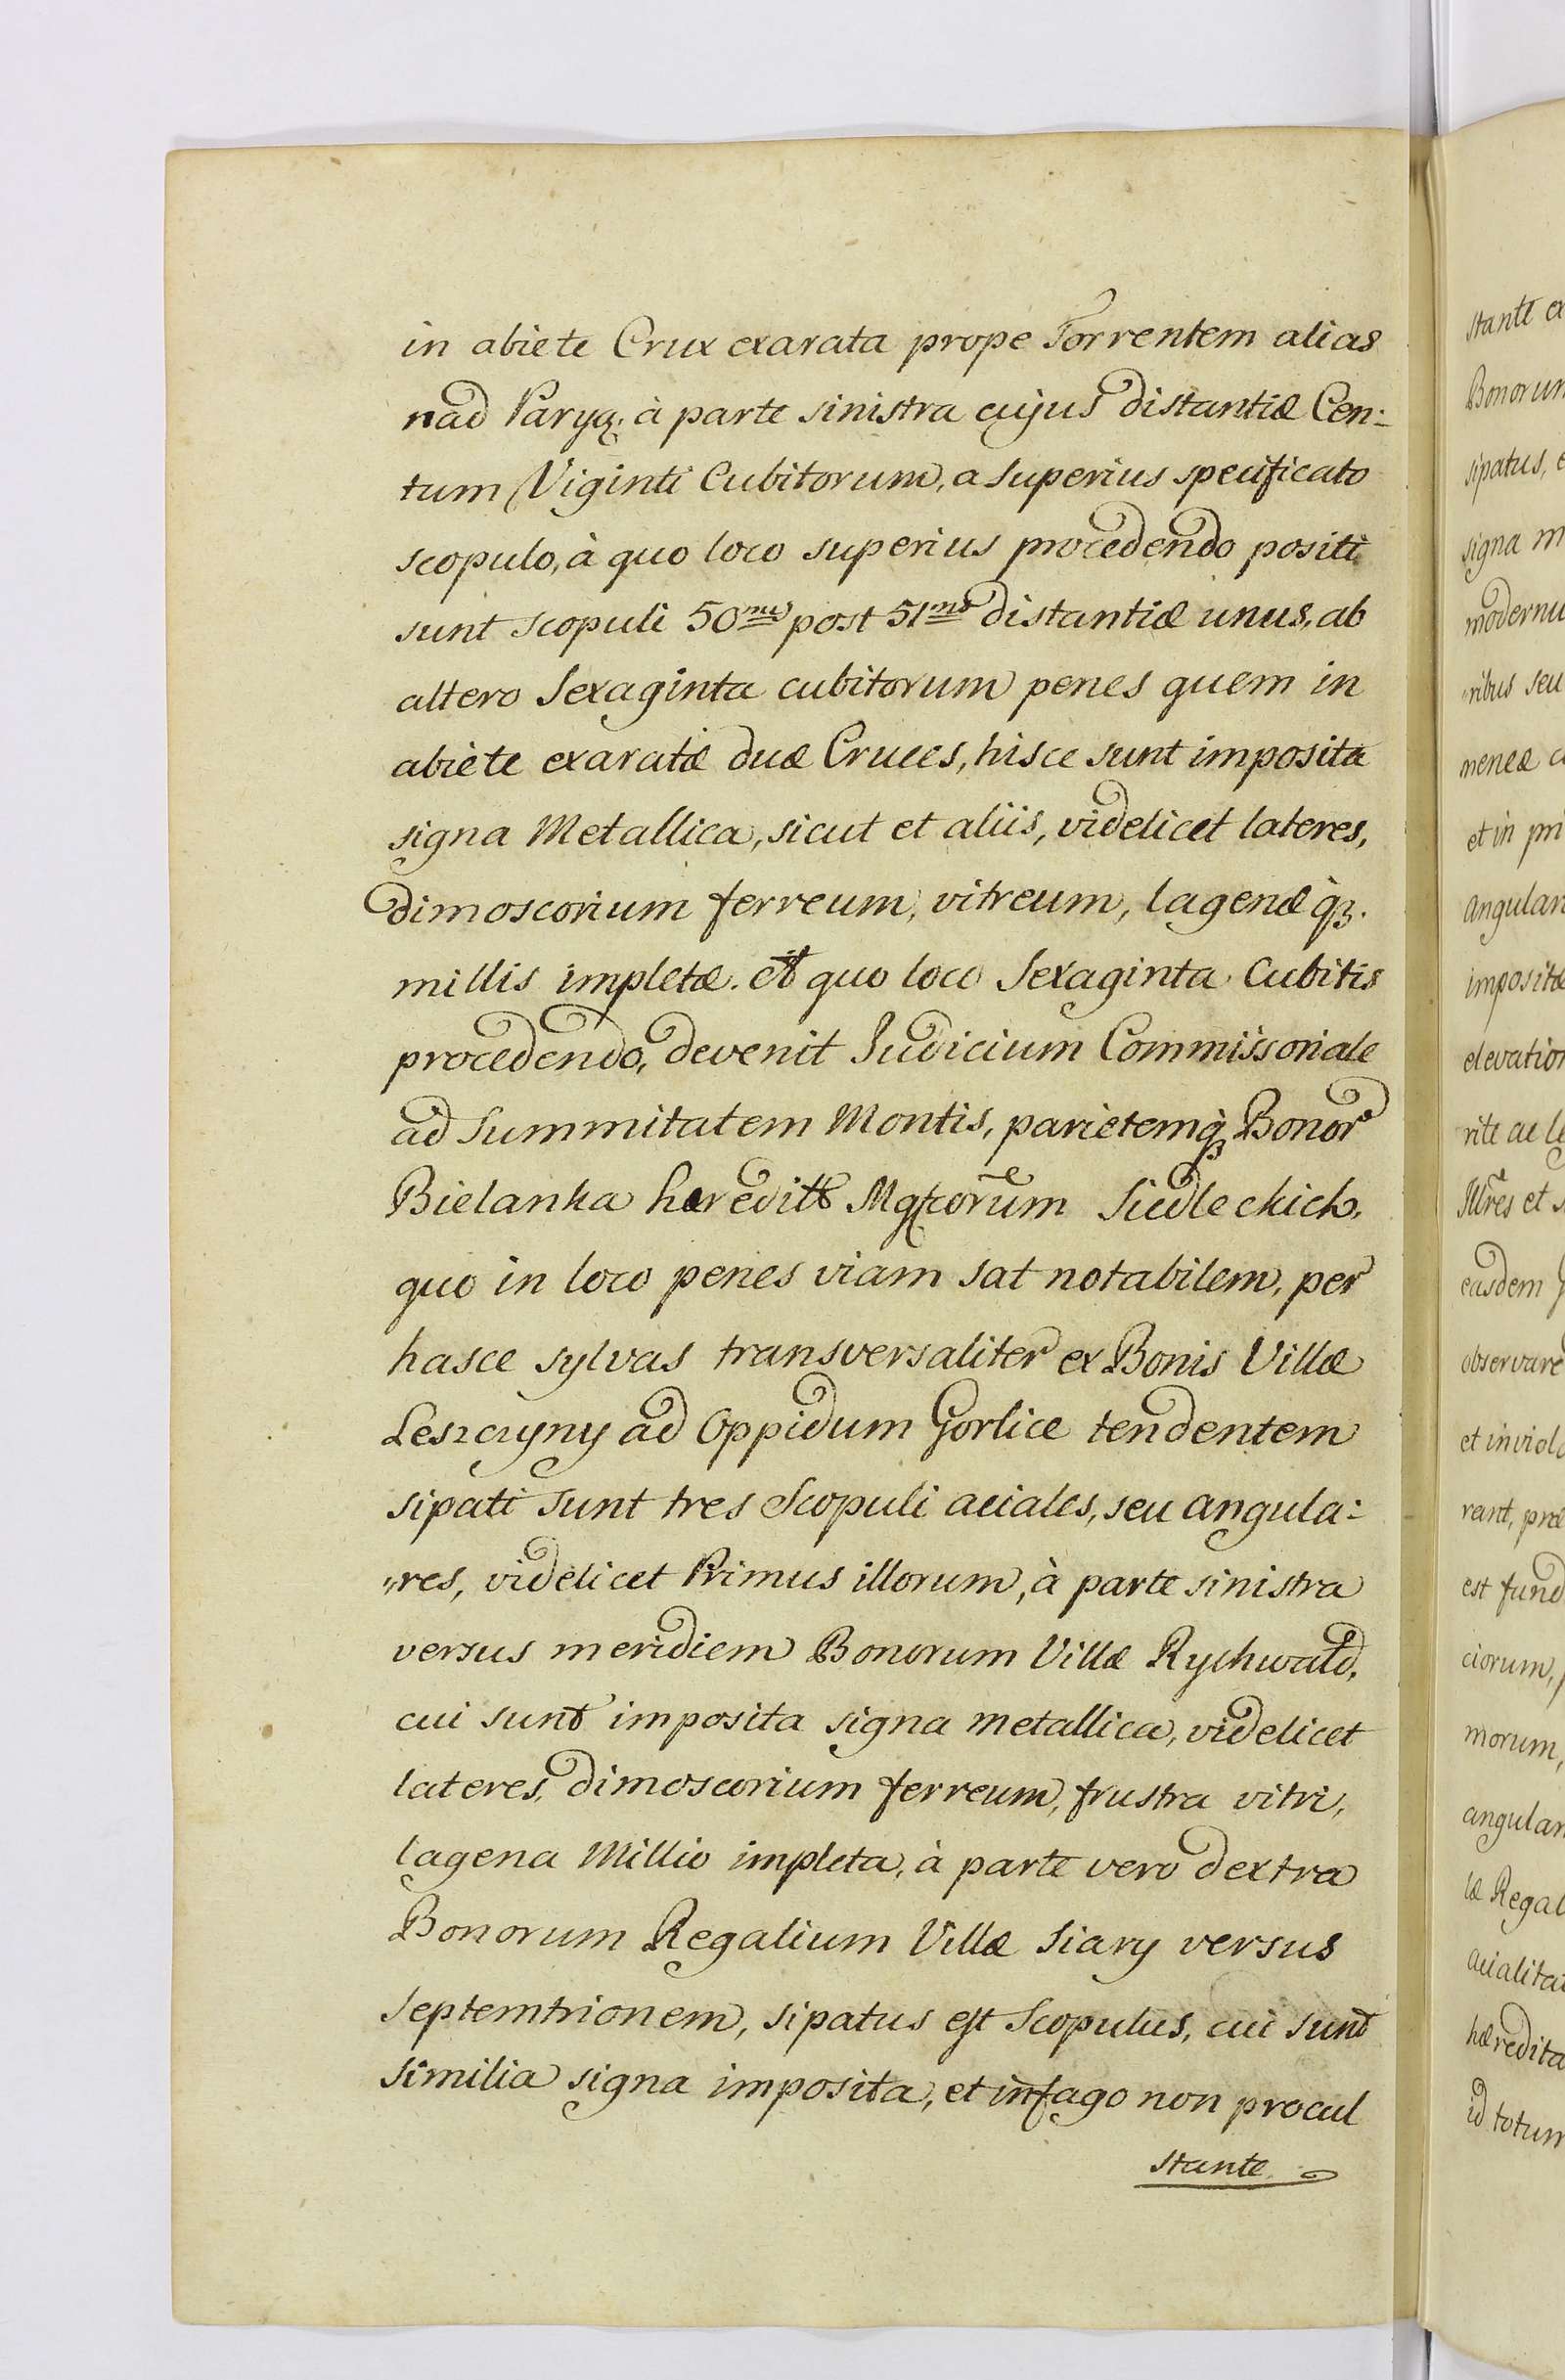 in abiete Crux exarata prope Torrentem alias
nad Paryą. à parte sinistra cujus distantiæ Cen:
tum Viginti Cubitorum, a superius specificato
scopulo, à quo loco superius procedendo positi
sunt scopuli 50mus post 51mus distantiæ unus, ab
altero Sexaginta cubitorum penes quem in
abiete exaratæ duæ Cruces, hisce sunt imposita
signa Metallica, sicut et aliis, videlicet lateres,
dimoscorium ferreum, vitreum, lagenæ qȝ.
millis impletæ. et quo loco Sexaginta Cubitis
procedendo, devenit Judicium Commissoriale
ad Summitatem Montis, parietemqȝ Bonor
Bielanka haredit Mgfcorum Siedleckich,
quo in loco penes viam sat notabilem, per
hasce sylvas transversaliter ex Bonis Villæ
Leszczyny ad Oppidum Gorlice tendentem
sipati sunt tres Scopuli aciales, seu angula:
"res, videlicet Primus illorum, à parte sinistra
versus meridiem Bonorum Villæ Rychwald,
cui sunt imposita signa metallica, videlicet
lateres, dimoscorium ferreum, frustra vitri,
lagena Millio impleta, à parte vero dextra
Bonorum Regalium Villæ Siary versus
Septemtrionem, sipatus est Scopulus, cui sunt
similia signa imposita, et in fago non procul
stante
stante ex
Bonorum
sipatus, e
signa m
modernu
"ribus seu
meneæ c
et in pri
angular
impositæ
elevation
rite ac le
Illres et
easdem
observare
et inviola
rant, præ
est fund
ciorum,
morum,
angular
læ Regal
acialita
hæredita
id totum